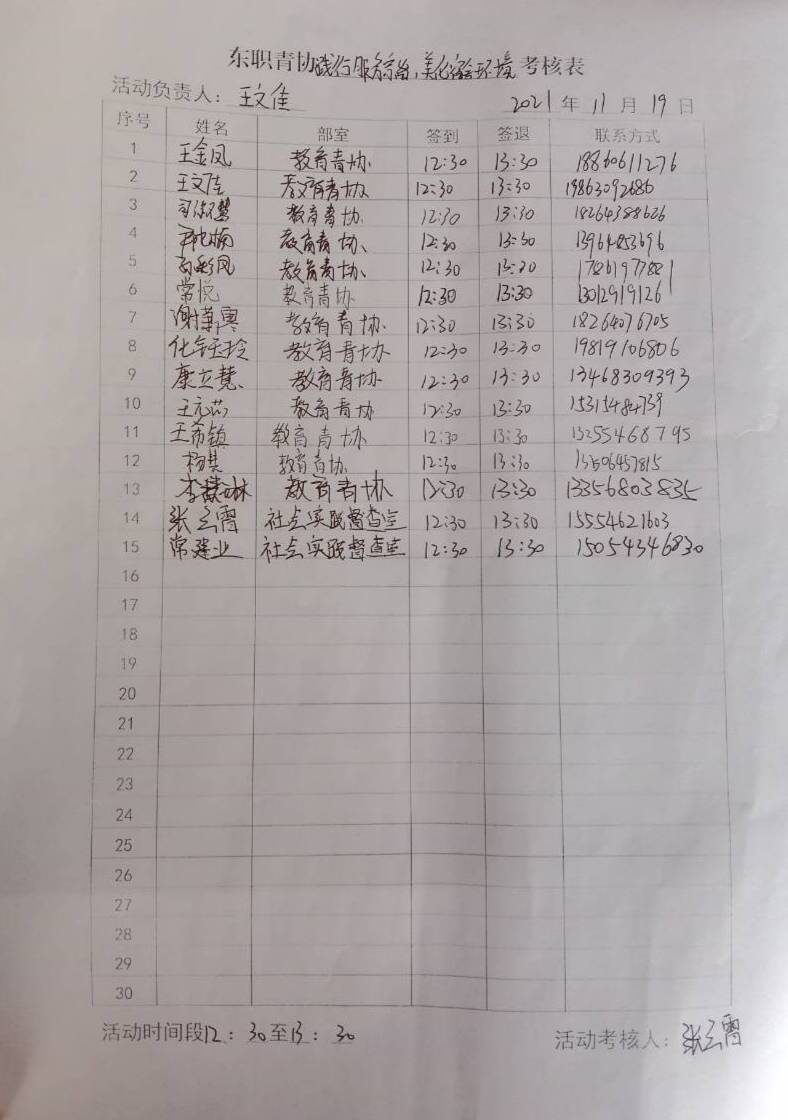 东职青协践行服务宗旨,美化宿舍环境考核表
活动负责人：王文佳 2021年11月19日
序号 姓名 部室 签到 签退 联系方式
1 王金凤 教育青协 12:30 13:30 18860611276
2 王文佳 教育青协 12:30 13:30 19863092686
3 教育青协 12:30 13:30 18264388626
4 教育青协 12:30 13:30 13964853696
5 教育青协 12:30 13:30 17861977881
6 常悦 教育青协 12:30 13:30 13012919126
7 教育青协 12:30 13:30 18264076705
8 教育青协 12:30 13:30 19819106806
9 康立慧 教育青协 12:30 13:30 13468309393
10 教育青协 12:30 13:30
11 王希镇 教育青协 12:30 13:30 13255468795
12 杨其 教育青协 12:30 13:30 13506457815
13 教育青协 12:30 13:30 13356803835
14 张云霄 社会实践督查室 12:30 13:30 15554621603
15 常建业 社会实践督查室 12:30 13:30 15054346830
16
17
18
19
20
21
22
23
24
25
26
27
28
29
30
活动时间段12：30至13：30 活动考核人：张云霄